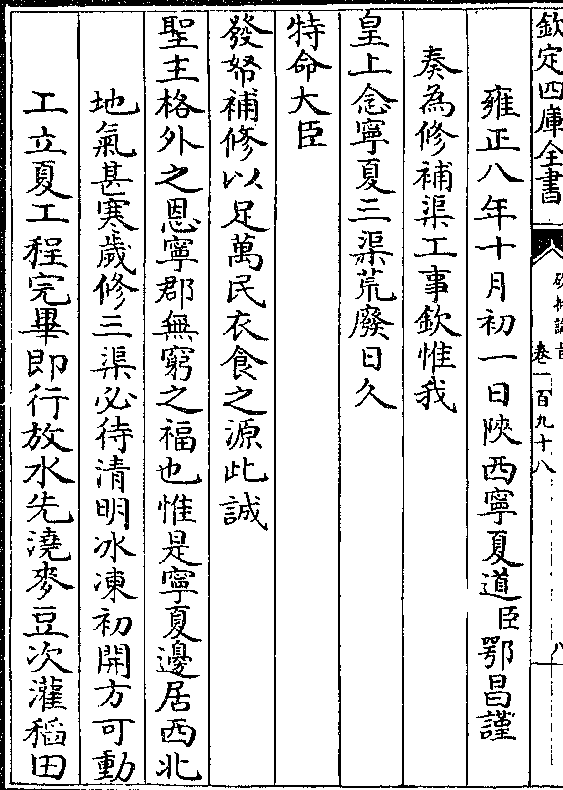 欽定四庫全書
硃批諭旨 卷一百九十八
八
雍正八年十月初一日陝西寧夏道臣鄂昌謹
奏為修補渠工事欽惟我
皇上念寧夏三渠荒廢日久
特命大臣
發帑補修以足萬民衣食之源此誠
聖主格外之恩寧郡無窮之福也惟是寧夏邊居西北
地氣甚寒歲修三渠必待清明冰凍初開方可動
工立夏工程完畢即行放水先澆麥豆次灌稻田